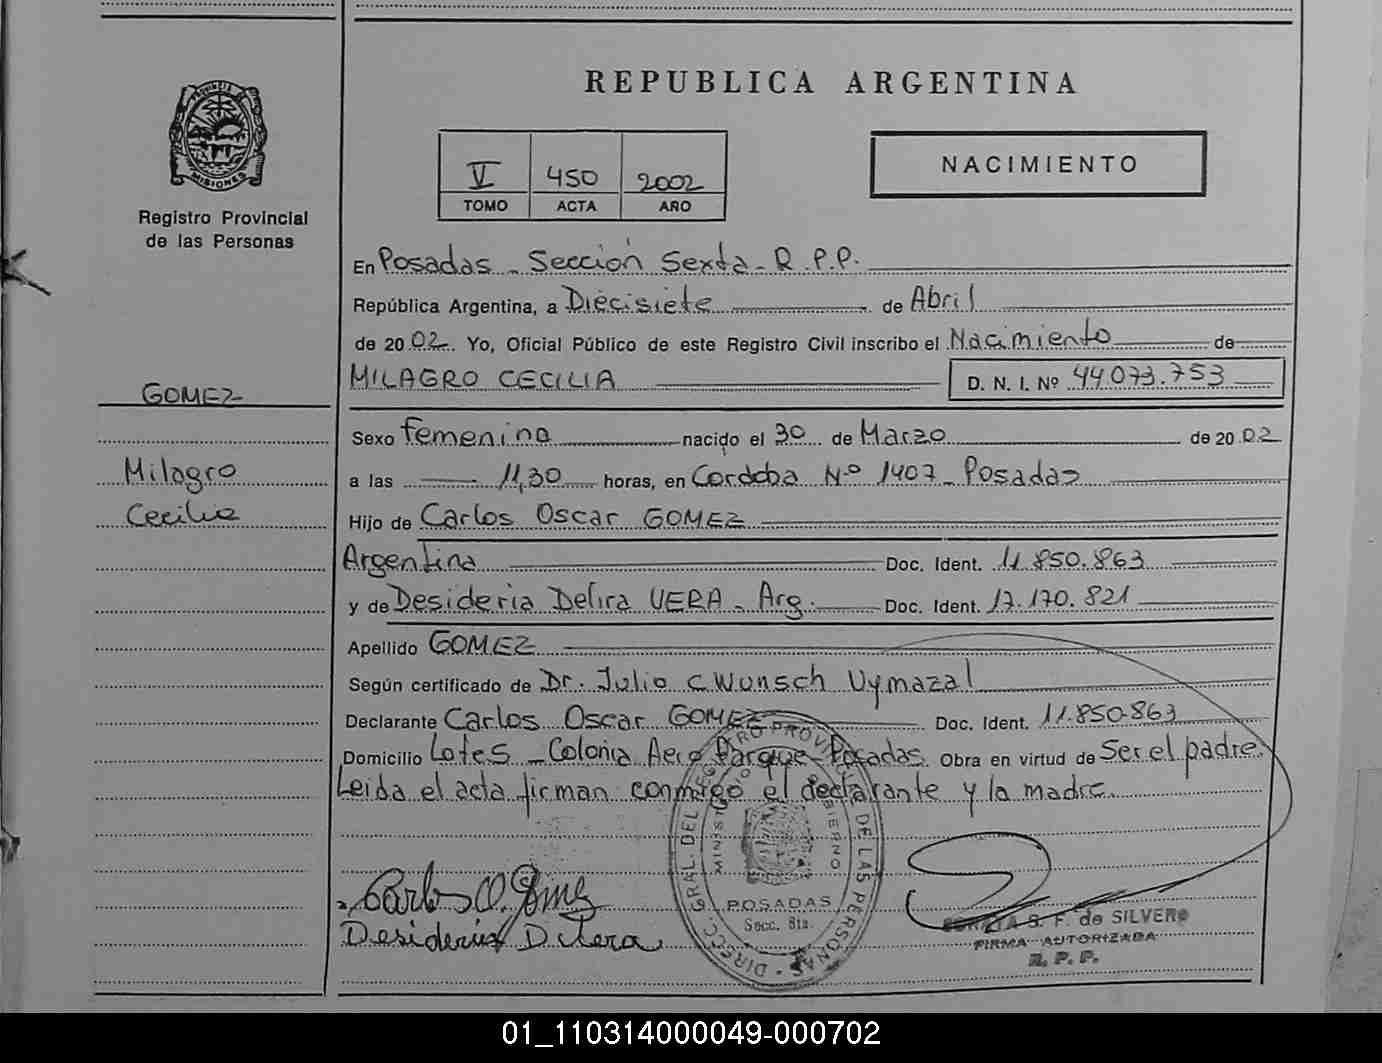 REPUBLICA ARGENTINA
PROVINCIA DE
MISIONES
Registro Provincial
de las Personas
V 450 2002
TOMO ACTA AÑO
NACIMIENTO
En Posadas - Sección Sexta - R.P.P.
República Argentina, a Diecisiete de Abril
de 2002 Yo, Oficial Público de este Registro Civil inscribo el Nacimiento de
MILAGRO CECILIA D. N. I. Nº 44.073.753
GOMEZ
Milagro
Cecilia
Sexo femenino nacido el 30 de Marzo de 2002
a las 11,30 horas, en Cordoba Nº 1407 - Posadas
Hijo de Carlos Oscar GOMEZ
Argentina Doc. Ident. 11.850.863
y de Desideria Delira VERA - Arg. Doc. Ident. 17.170.821
Apellido GOMEZ
Según certificado de Dr. Julio C Wunsch Vymazal
Declarante Carlos Oscar GOMEZ Doc. Ident. 11.850.863
Domicilio Lotes - Colonia Aero Parque - Posadas. Obra en virtud de Ser el padre.
Leida el acta firman conmigo el declarante y la madre.
DIRECC. GRAL. DEL REGISTRO PROVINCIAL DE LAS PERSONAS
MINISTERIO GOBIERNO
POSADAS
Secc.
Carlos O. Gomez
Desideria D
S. F. de SILVERO
FIRMA AUTORIZADA
R. P. P.
01_110314000049-000702